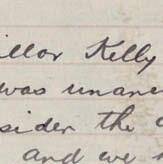 illor Kelly
was unani
sider the
and we